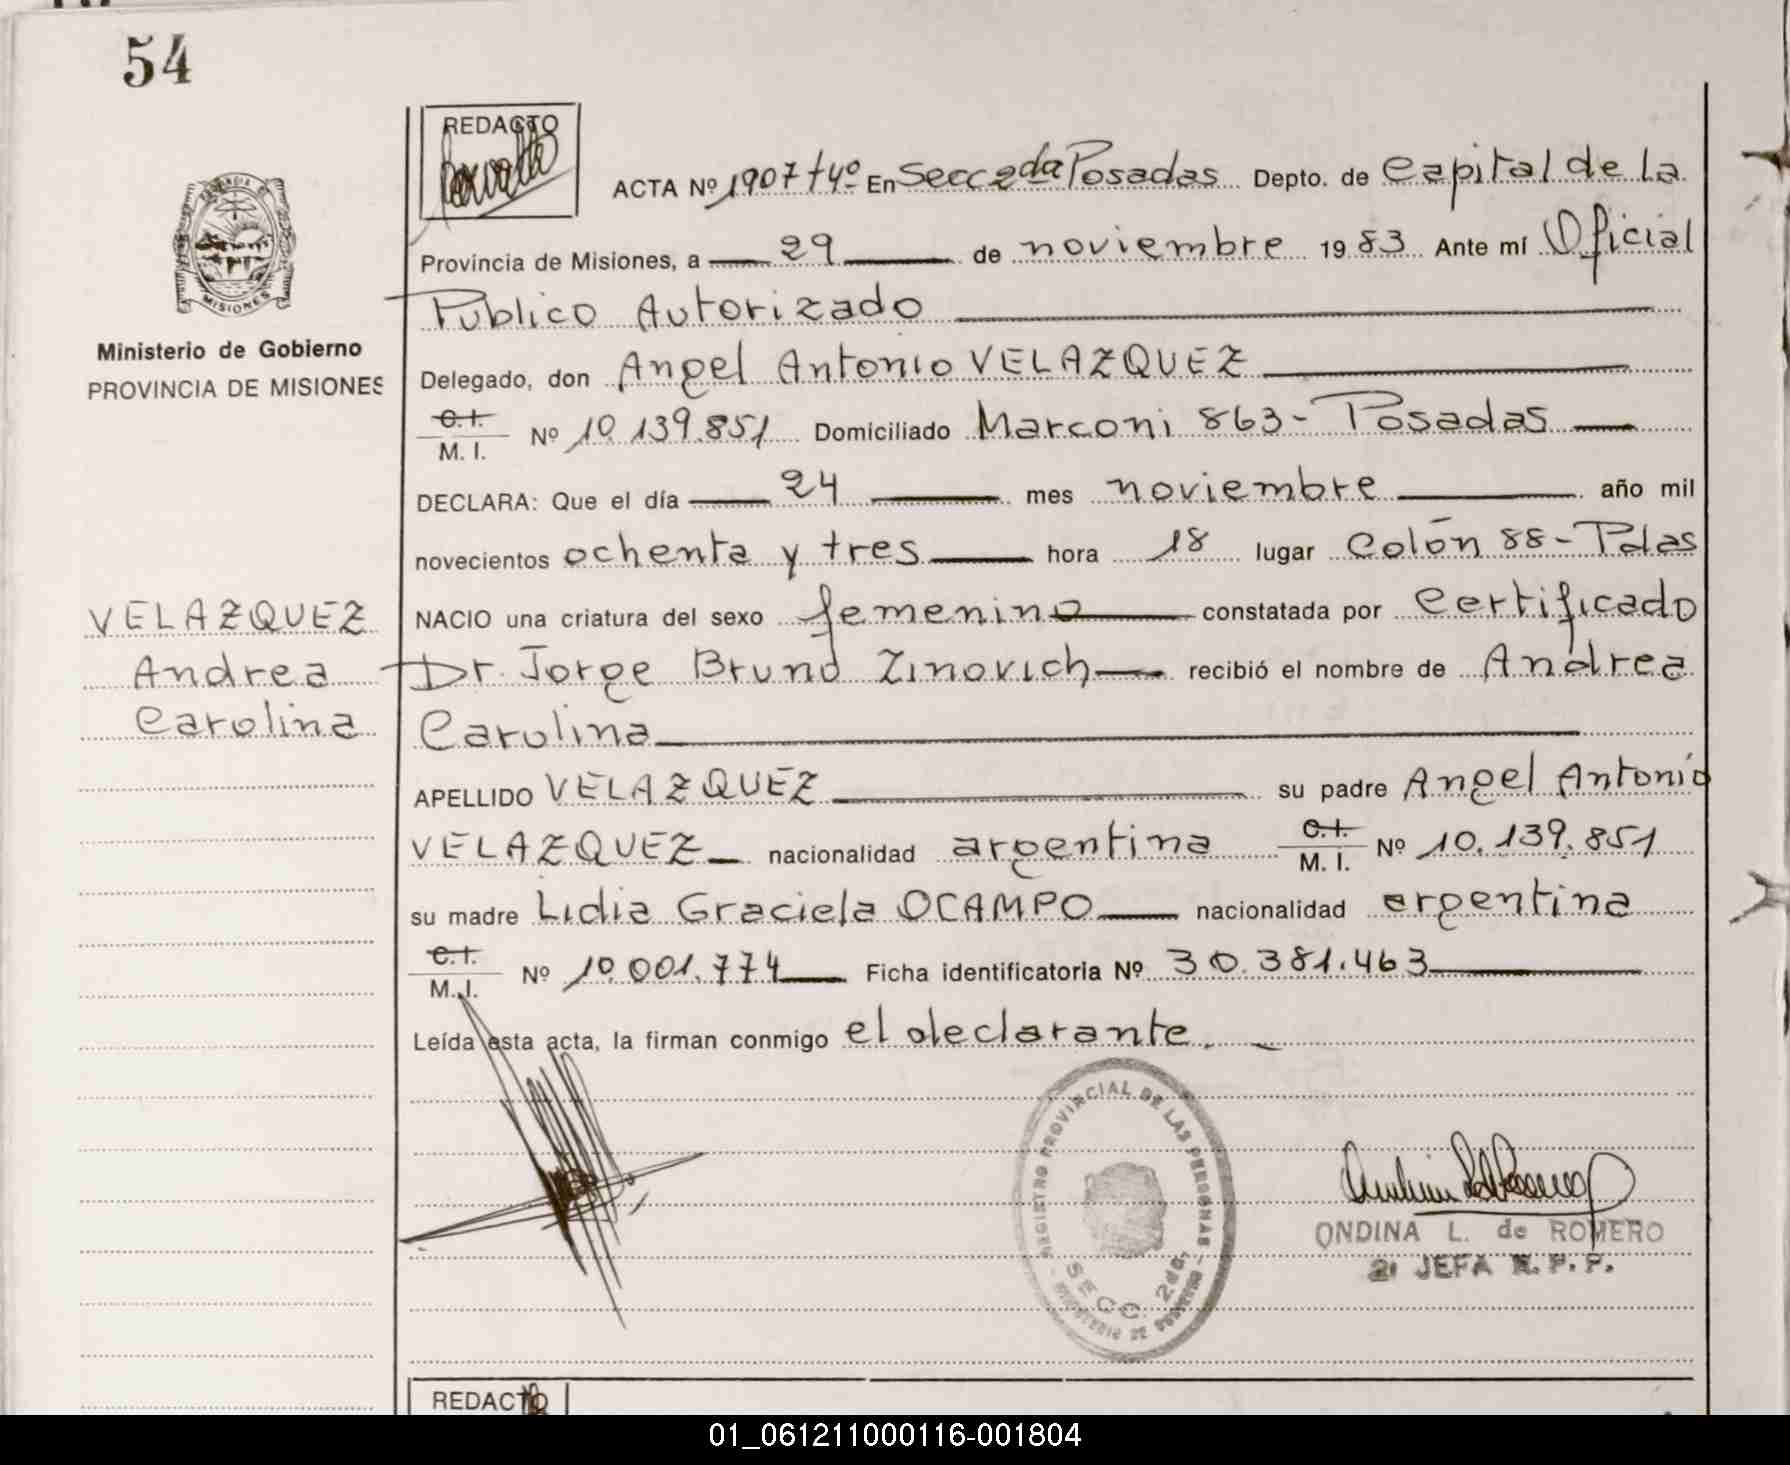 54
REDACTO
ACTA Nº 1907 tº 4º En Secc 2da Posadas Depto. de Capital de la
Provincia de Misiones, a 29 de noviembre 1983 Ante mí Oficial
Publico Autorizado
MISIONES
Ministerio de Gobierno
PROVINCIA DE MISIONES
Delegado, don Angel Antonio VELAZQUEZ
C.I.
M. I. Nº 10.139.851 Domiciliado Marconi 863- Posadas
DECLARA: Que el día 24 mes noviembre año mil
novecientos ochenta y tres hora 18 lugar Colón 88- Pdas
VELAZQUEZ
Andrea
Carolina
NACIO una criatura del sexo femenino constatada por Certificado
Dr. Jorge Bruno Zinovich recibió el nombre de Andrea
Carolina
APELLIDO VELAZQUEZ su padre Angel Antonio
VELAZQUEZ nacionalidad argentina C.I. M. I. Nº 10.139.851
su madre Lidia Graciela OCAMPO nacionalidad argentina
C.I.
M. I. Nº 10.001.774 Ficha identificatoria Nº 30.381.463
Leída esta acta, la firman conmigo el declarante.
REGISTRO PROVINCIAL DE LAS PERSONAS
SECC. 2da.
MINISTERIO DE GOBIERNO
ONDINA L. de ROMERO
JEFA R. P. P.
REDACTO
01_061211000116-001804